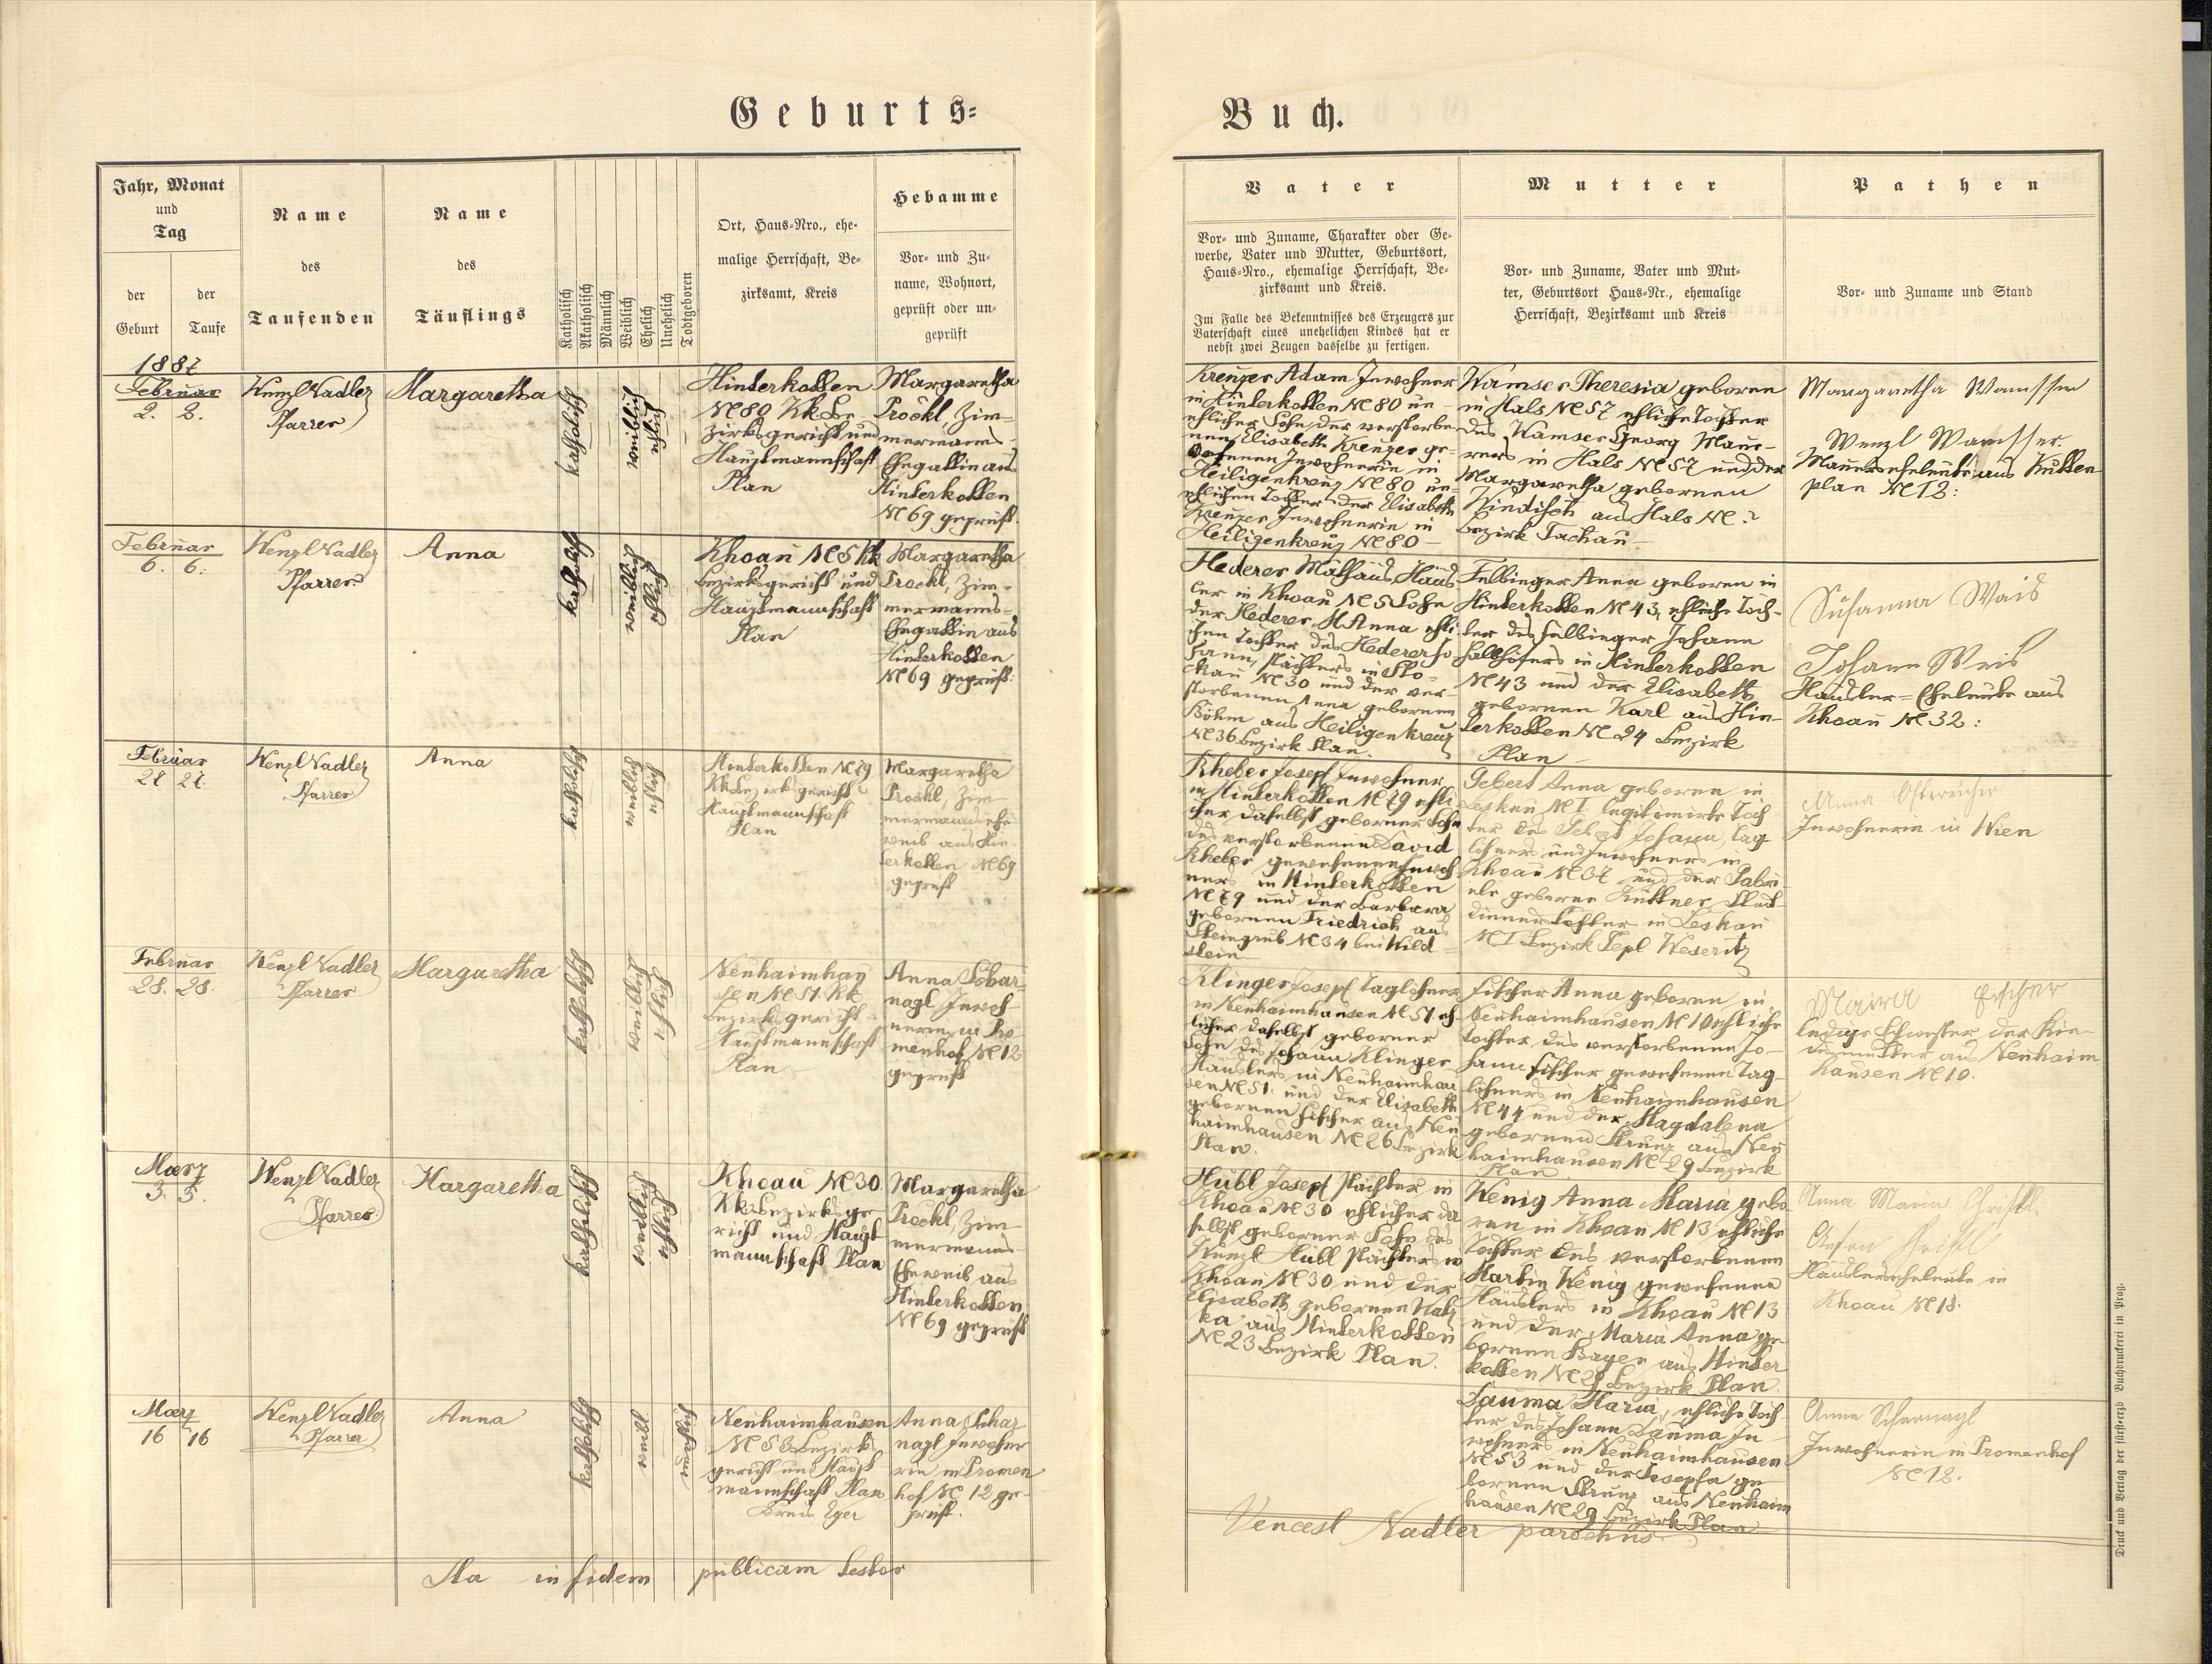 Geburts=
Buch.
Jahr, Monat
und
Tag
der
Geburt
der
Taufe
Name
des
Taufenden
Name
des
Täuflings
Katholisch
Akatholisch
Männlich
Weiblich
Ehelich
Unehelich
Todtgeboren
Ort, Haus=Nro., ehe=
malige Herrschaft, Be=
zirksamt, Kreis
Hebamme
Vor= und Zu=
name, Wohnort,
geprüft oder un=
geprüft
Vater
Vor= und Zuname, Charakter oder Ge=
werbe, Vater und Mutter, Geburtsort,
Haus=Nro., ehemalige Herrschaft, Be=
zirksamt und Kreis.
Im Falle des Bekenntnisses des Erzeugers zur
Vaterschaft eines unehelichen Kindes hat er
nebst zwei Zeugen dasselbe zu fertigen.
Mutter
Vor= und Zuname, Vater und Mut=
ter, Geburtsort Haus=Nr., ehemalige
Herrschaft, Bezirksamt und Kreis
Pathen
Vor= und Zuname und Stand
1887
Februar
2. 3.
Wenzl Nadler
Pfarrer
Margaretha
katholisch
weiblich
ehlich
Hinterkotten
N 80 Kk Be-
zirksgericht und
Hauptmannschaft
Plan
Margaretha
Prockl, Zim=
mermanns=
Ehegattin aus
Hinterkotten
N 69 geprüft.
Kreuzer Adam Inwohner
in Hinterkotten N 80 un-
ehlicher Sohn der verstorbe-
nen Elisabeth Kreuzer ge-
wesenen Inwohnerin in
Heiligenkreuz N 80 un-
ehlichen Tochter der Elisabeth
Kreuzer Inwohnerin in
Heiligenkreuz N 80 –
Wamser Theresia geboren
in Hals N 57 ehliche Tochter
des Wamser Georg Maur-
rers in Hals N 57 und der
Margaretha gebornen
Windisch aus Hals N ?
Bezirk Tachau –
Margaretha Wamsser
Wenzl Wamsser
Maurerseheleute aus Kutten
plan N 12:
Februar
6. 6.
Wenzl Nadler
Pfarrer
Anna
katholisch
weiblich
ehlich
Khoau N 5 Kk
Bezirksgericht und
Hauptmannschaft
Plan
Margaretha
Prockl, Zim=
mermanns=
Ehegattin aus
Hinterkotten
N 69 geprüft.
Hederer Mathäus, Häus
ler in Khoau N 5 Sohn
der Hederer M Anna ehli
chen Tochter des Hederer Jo
hann, Pächters in Sto=
ckau N 30 und der ver-
storbenen Anna gebornen
Böhm aus Heiligenkreuz
N 36 Bezirk Plan
Felbinger Anna geboren in
Hinterkotten N 43, ehliche Toch-
ter des Felbinger Johann
Halbhöfers in Hinterkotten
N 43 und der Elisabeth
gebornen Karl aus Hin-
terkotten N 24 Bezirk
Plan –
Susanna Wais
Johann Weis
Häusler=Eheleute aus
Khoau N 32:
Februar
27 27.
Wenzl Nadler
Pfarrer
Anna
katholisch
weiblich
ehlich
Hinterkotten N 79
Kk Bezirksgericht
Hauptmannschaft
Plan
Margaretha
Prockl, Zim
mermannsehe
weib aus Hin-
terkotten N 69
geprüft
Kheber Josef Inwohner
in Hinterkotten N 79 ehli
cher daselbst geborner Sohn
des verstorbenen David
Kheber gewesenen Inwoh
ners in Hinterkotten
N 79 und der Barbara
gebornen Friedrich aus
Steingrub N 34 bei Wild-
stein
Gebert Anna geboren in
Leskau N I legitimirte Toch
ter des Gebert Johann, Tag
löhners und Inwohners in
Khoau N 37 und der Gabri
ele geborne Küttner, Stadt
dienerstochter in Leskau
N I Bezirk Tepl Weseritz
Anna Österreicher
Inwohnerin in Wien
Februar
28. 28.
Wenzl Nadler
Pfarrer
Margaretha
katholisch
weiblich
ehlich
Neuhaimhau
sen N 51. Kk
Bezirksgericht
Hauptmannschaft
Plan
Anna Schar
nagl Inwoh-
nerin in Pro-
menhof N 12
geprüft
Klinger Josef Taglöhner
in Neuhaimhausen N 51 eh-
licher daselbst geborner
Sohn des Johann Klinger
Häuslers in Neuhaimhau
sen N 51. und der Elisabeth
gebornen Fischer aus Neu
haimhausen N 26 Bezirk
Plan.
Fischer Anna geboren in
Neuhaimhausen N 10 ehliche
Tochter des verstorbenen Jo-
hann Fischer gewesenen Tag
löhners in Neuhaimhausen
N 44 und der Magdalena
gebornen Strunz aus Neu
haimhausen N 29 Bezirk
Plan
Maira Fischer
ledige Schwester der Kin-
desmutter aus Neuhaim
hausen N 10.
Maerz
3. 5.
Wenzl Nadler
Pfarrer
Margaretha
katholisch
weiblich
ehlich
Khoau N 30
Kk Bezirksge
richt und Haupt
mannschaft Plan
Margaretha
Prockl, Zim-
mermanns
Eheweib aus
Hinterkotten
N 69 geprüft
Hübl Josef Pächter in
Khoau N 30 ehlicher da
selbst geborner Sohn des
Wenzl Hübl Pächters in
Khoau N 30 und der
Elisabeth gebornen
ka aus Hinterkotten
N 23 Bezirk Plan.
Wenig Anna Maria gebo-
ren in Khoau N 13 ehliche
Tochter des verstorbenen
Martin Wenig gewesenen
Häuslers in Khoau N 13
und der Maria Anna ge
bornen Bayer aus Hinter
kotten N 28 Bezirk Plan
Anna Maria Christl
Häuslerseheleute in
Khoau N 18.
Maerz
16 16
Wenzl Nadler
Pfarrer
Anna
katholisch
weibl
unehlich
Neuhaimhausen
N 53 Bezirks
gericht und Haupt
mannschaft Plan
Kreis Eger
Anna Schar
nagl Inwohne
rin in Promen
hof N 12 ge-
prüft.
Sauma Maria, ehliche Toch
ter des Johann Sauma In-
wohners in Neuhaimhausen
N 53 und der Josepha ge
bornen Strunz aus Neuhaim
hausen N 29 Bezirk Plan
Anna Scharnagl
Inwohnerin in Promenhof
N 12.
Ita in fidem publicam testor
Vencesl Nadler parochus.
Druck und Verlag der fürst=erzb. Buchdruckerei in Prag.